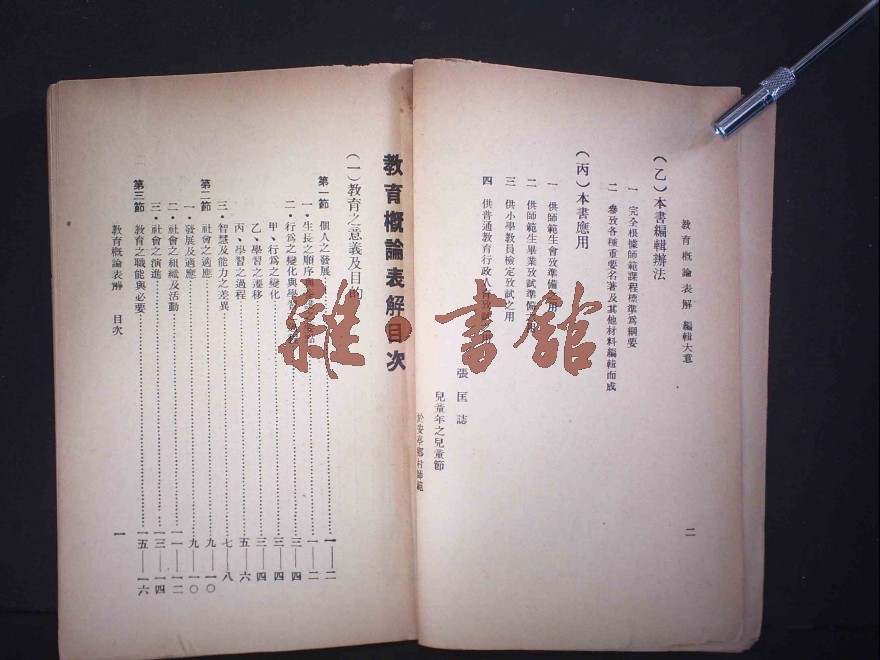 教育概論表解　編輯大意
二
（乙）本書編輯辦法
一　完全根據師範課程標準爲綱要
二　參攷各種重要名著及其他材料編輯而成
（丙）本書應用
一　供師範生會攷準備之用
二　供師範生畢業攷試準備之用
三　供小學教員檢定攷試之用
四　供普通教育行政人員攷試之用
張匡誌
兒童年之兒童節
於安亭鄉村師範
教育概論表解目次
（一）教育之意義及目的
第一節　個人之發展……一—二
一・生長之順序與……一—二
二・行爲之變化與學習……三—四
甲、行爲之變化……三—四
乙、學習之遷移……三—四
丙、學習之過程……五—六
三・智慧及能力之差異……七—八
第二節　社會之適應……九—一〇
一・發展及適應……九—一〇
二・社會之組織及活動……一一—一二
三・社會之演進……一三—一四
第三節　教育之職能與必要……一五—一六
教育概論表解　目次
一
雜・書館